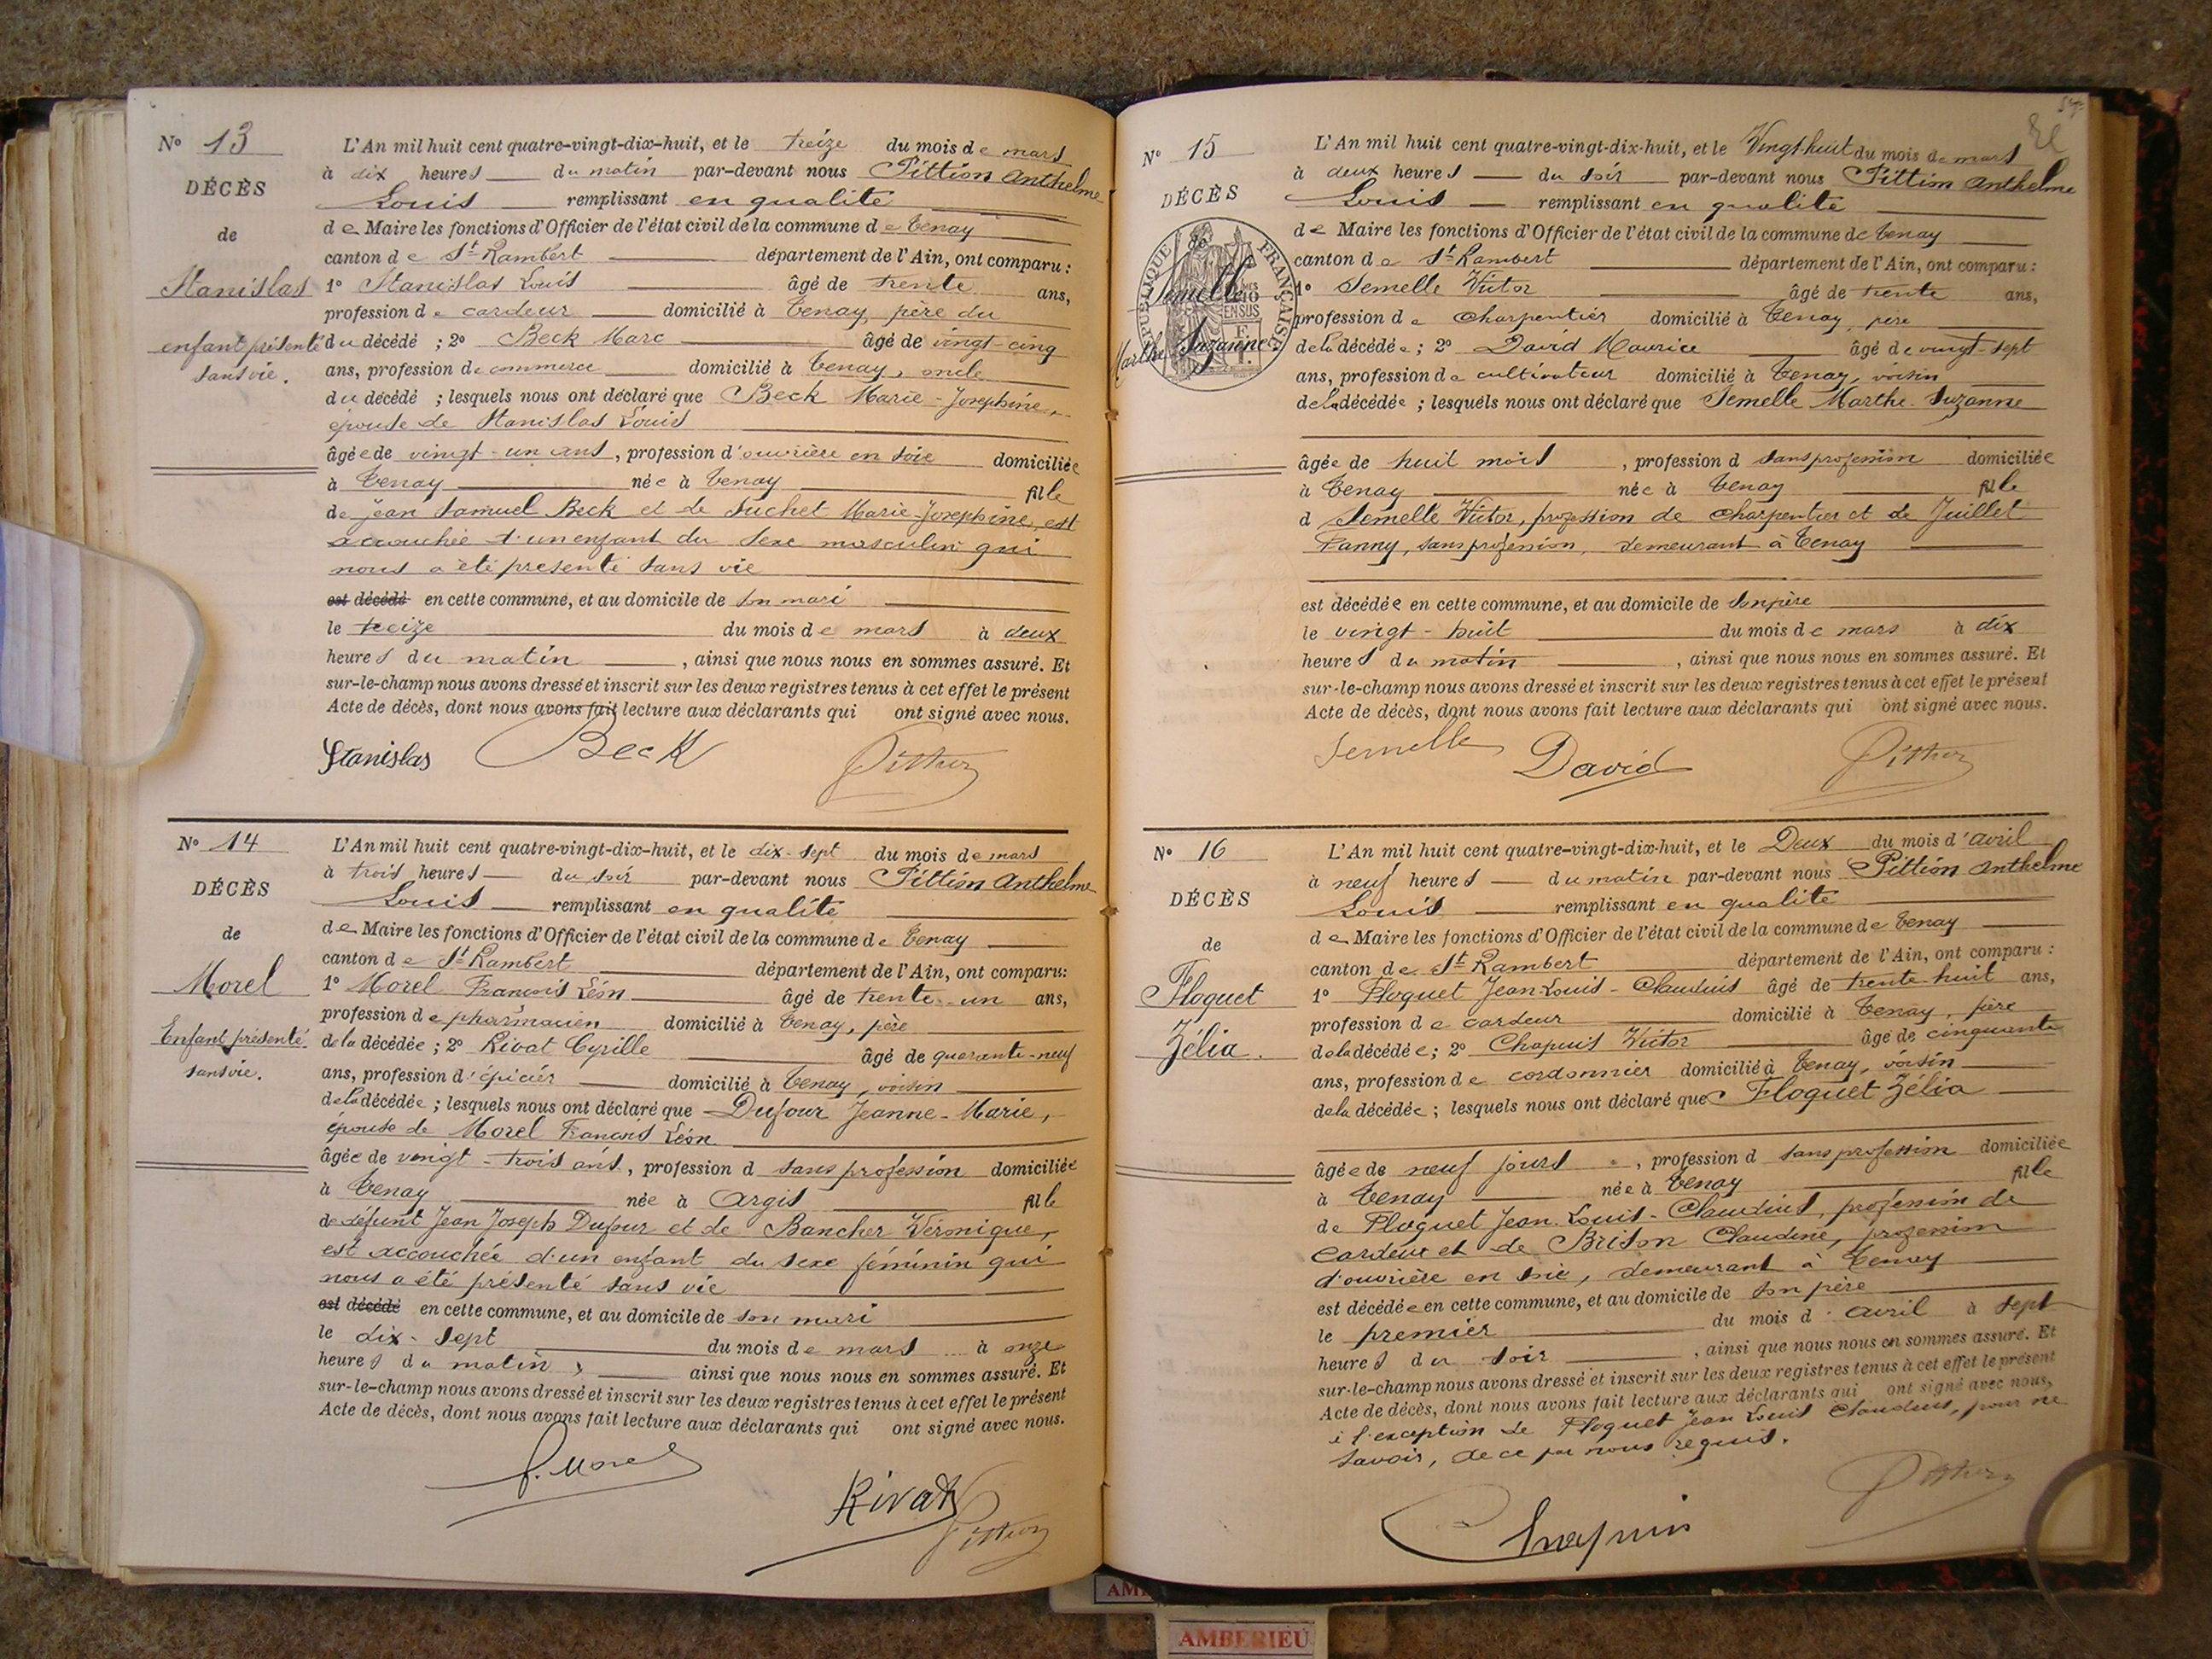 N° 13
DÉCÈS
de
Stanislas
enfant présenté
sans vie.
L'An mil huit cent quatre-vingt-dix-huit, et le treize du mois de mars
à dix heures du matin par-devant nous Pittion Anthelme
Louis remplissant en qualité
de Maire les fonctions d'Officier de l'état civil de la commune de Tenay
canton de St Rambert département de l'Ain, ont comparu :
1° Stanislas Louis âgé de trente ans,
profession de cardeur domicilié à Tenay, père du
du décédé ; 2° Beck Marc âgé de vingt-cinq
ans, profession de commerce domicilié à Tenay, oncle
du décédé ; lesquels nous ont déclaré que Beck Marie-Josephine,
épouse de Stanislas Louis
âgée de vingt-un ans, profession d'ouvrière en soie domiciliée
à Tenay née à Tenay fille
de Jean Samuel Beck et de Suchet Marie-Josephine, est
accouchée d'un enfant du sexe masculin qui
nous a été présenté sans vie
est décédé en cette commune, et au domicile de son mari
le treize du mois de mars à deux
heures du matin, ainsi que nous nous en sommes assuré. Et
sur-le-champ nous avons dressé et inscrit sur les deux registres tenus à cet effet le présent
Acte de décès, dont nous avons fait lecture aux déclarants qui ont signé avec nous.
Stanislas Beck Pittion
N° 14
DÉCÈS
de
Morel
Enfant présenté
sans vie.
L'An mil huit cent quatre-vingt-dix-huit, et le dix-sept du mois de mars
à trois heures du soir par-devant nous Pittion Anthelme
Louis remplissant en qualité
de Maire les fonctions d'Officier de l'état civil de la commune de Tenay
canton de St Rambert département de l'Ain, ont comparu :
1° Morel François Léon âgé de trente-un ans,
profession de pharmacien domicilié à Tenay, père
de la décédée ; 2° Rivat Cyrille âgé de quarante-neuf
ans, profession d'épicier domicilié à Tenay, voisin
de la décédée ; lesquels nous ont déclaré que Dufour Jeanne-Marie,
épouse de Morel François Léon
âgée de vingt-trois ans, profession d sans profession domiciliée
à Tenay née à Argis fille
de défunt Jean Joseph Dufour et de Bancher Véronique,
est accouchée d'un enfant du sexe féminin qui
nous a été présenté sans vie
est décédé en cette commune, et au domicile de son mari
le dix-sept du mois de mars à onze
heures du matin, ainsi que nous nous en sommes assuré. Et
sur-le-champ nous avons dressé et inscrit sur les deux registres tenus à cet effet le présent
Acte de décès, dont nous avons fait lecture aux déclarants qui ont signé avec nous.
Morel
Rivat
Pittion
N° 15
DÉCÈS
de
RÉPUBLIQUE FRANÇAISE
Semelle
Marthe Suzanne
L'An mil huit cent quatre-vingt-dix-huit, et le Vingt huit du mois de mars
à deux heures du soir par-devant nous Pittion Anthelme
Louis remplissant en qualité
de Maire les fonctions d'Officier de l'état civil de la commune de Tenay
canton de St Rambert département de l'Ain, ont comparu :
1° Semelle Victor âgé de trente ans,
profession de charpentier domicilié à Tenay, père
de la décédée ; 2° David Maurice âgé de vingt-sept
ans, profession de cultivateur domicilié à Tenay, voisin
de la décédée ; lesquels nous ont déclaré que Semelle Marthe Suzanne
âgée de huit mois, profession d sans profession domiciliée
à Tenay née à Tenay fille
d Semelle Victor, profession de charpentier et de Juillet
Fanny, sans profession, demeurant à Tenay
est décédée en cette commune, et au domicile de son père
le vingt-huit du mois de mars à dix
heures du matin, ainsi que nous nous en sommes assuré. Et
sur-le-champ nous avons dressé et inscrit sur les deux registres tenus à cet effet le présent
Acte de décès, dont nous avons fait lecture aux déclarants qui ont signé avec nous.
Semelle David Pittion
N° 16
DÉCÈS
de
Floquet
Zélia.
L'An mil huit cent quatre-vingt-dix-huit, et le Deux du mois d'avril
à neuf heures du matin par-devant nous Pittion Anthelme
Louis remplissant en qualité
de Maire les fonctions d'Officier de l'état civil de la commune de Tenay
canton de St Rambert département de l'Ain, ont comparu :
1° Floquet Jean-Louis-Claudius âgé de trente-huit ans,
profession de cardeur domicilié à Tenay, père
de la décédée ; 2° Chapuis Victor âgé de cinquante
ans, profession de cordonnier domicilié à Tenay, voisin
de la décédée ; lesquels nous ont déclaré que Floquet Zélia
âgée de neuf jours, profession d sans profession domiciliée
à Tenay née à Tenay fille
de Floquet Jean-Louis-Claudius, profession de
cardeur et de Brison Claudine, profession
d'ouvrière en soie, demeurant à Tenay
est décédée en cette commune, et au domicile de son père
le premier du mois d'avril à sept
heures du soir, ainsi que nous nous en sommes assuré. Et
sur-le-champ nous avons dressé et inscrit sur les deux registres tenus à cet effet le présent
Acte de décès, dont nous avons fait lecture aux déclarants qui ont signé avec nous,
à l'exception de Floquet Jean Louis Claudius, pour ne
savoir, de ce par nous requis.
Pittion
Chapuis
AMBERIEU